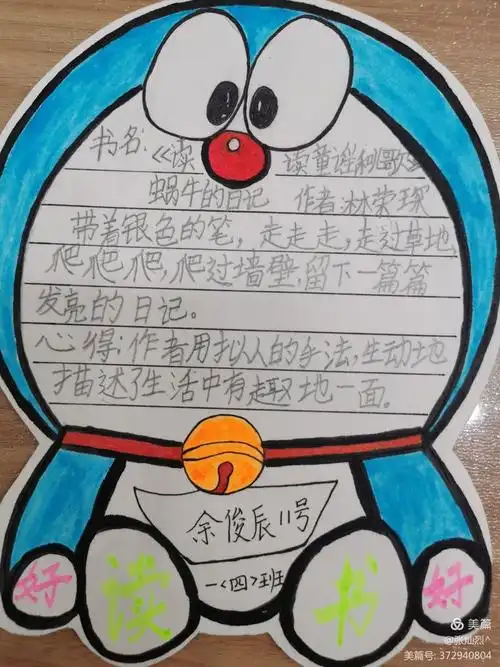 书名:《读 读童谣和歌》
蜗牛的日记 作者:林荣琛
带着银色的笔，走走走，走过草地，
爬爬爬，爬过墙壁，留下一篇篇
发亮的日记。
心得:作者用拟人的手法，生动地
描述了生活中有趣地一面。
余俊辰11号
一<四>班
好读书好
美篇
@张灿烈(^
美篇号: 372940804